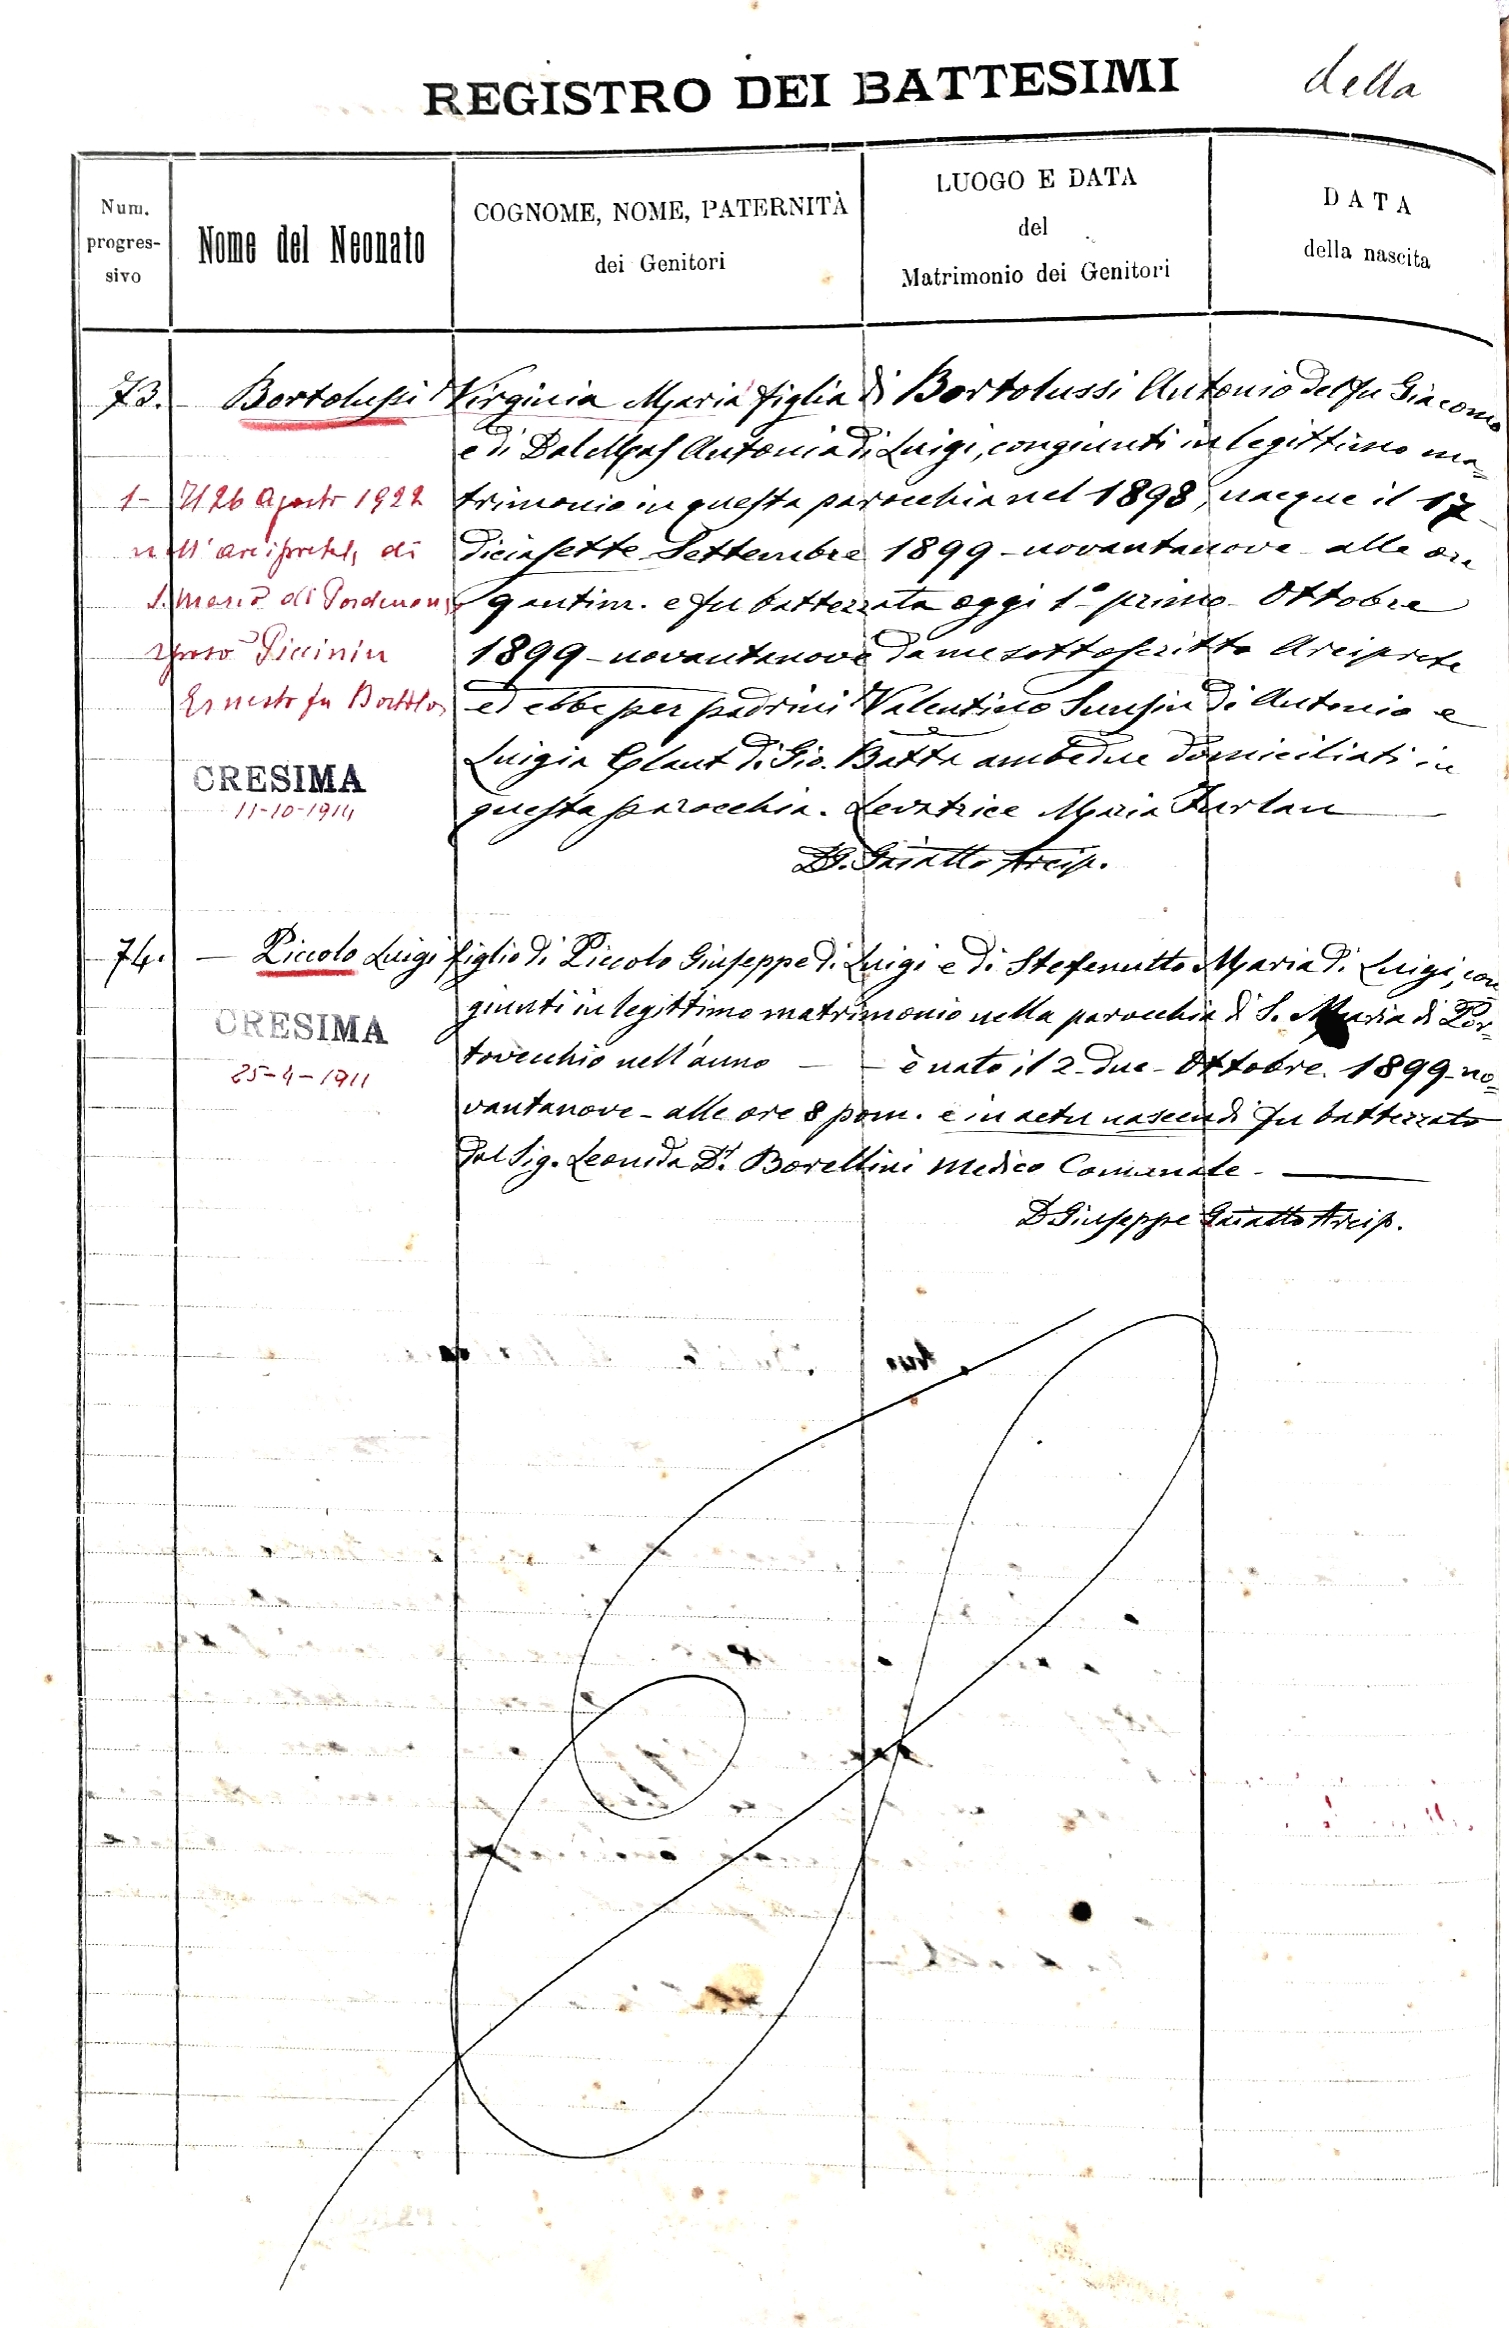 REGISTRO DEI BATTESIMI della
Num.
progres-
sivo
Nome del Neonato
COGNOME, NOME, PATERNITÀ
dei Genitori
LUOGO E DATA
del
Matrimonio dei Genitori
DATA
della nascita
73. Bortolussi Virginia Maria figlia di Bortolussi Antonio del fu Giacomo
e di Dal Mas Antonia di Luigi, congiunti in legittimo ma=
trimonio in questa parocchia nel 1898, nacque il 17
diciasette Settembre 1899 - novantanove - alle ore
9 antim. e fu battezzata oggi 1° primo - Ottobre
1899 - novantanove da me sottoscritto Arciprete
ed ebbe per padrini Valentino Sunsin di Antonio e
Luigia Glaut di Gio. Batta ambedue domiciliati in
questa parocchia. Levatrice Maria Furlan
D. G. Gaiatto Arcip.
1- Il 26 Agosto 1922
nell' arcipretel, di
S. Marco di Pordenone
sposò Piccinin
Ernesto fu Bortolo
CRESIMA
11-10-1914
74. — Piccolo Luigi figlio di Piccolo Giuseppe di Luigi e di Stefenutto Maria di Luigi, con
giunti in legittimo matrimonio nella parocchia di S. Maria di Por=
tovecchio nell'anno — — è nato il 2 - due - Ottobre 1899 - no=
vantanove - alle ore 8 pom. e in actu nascendi fu battezzato
dal Sig. Leonida Dr. Borellini Medico Comunale -
D Giuseppe Gaiatto Arcip.
CRESIMA
25-4-1911